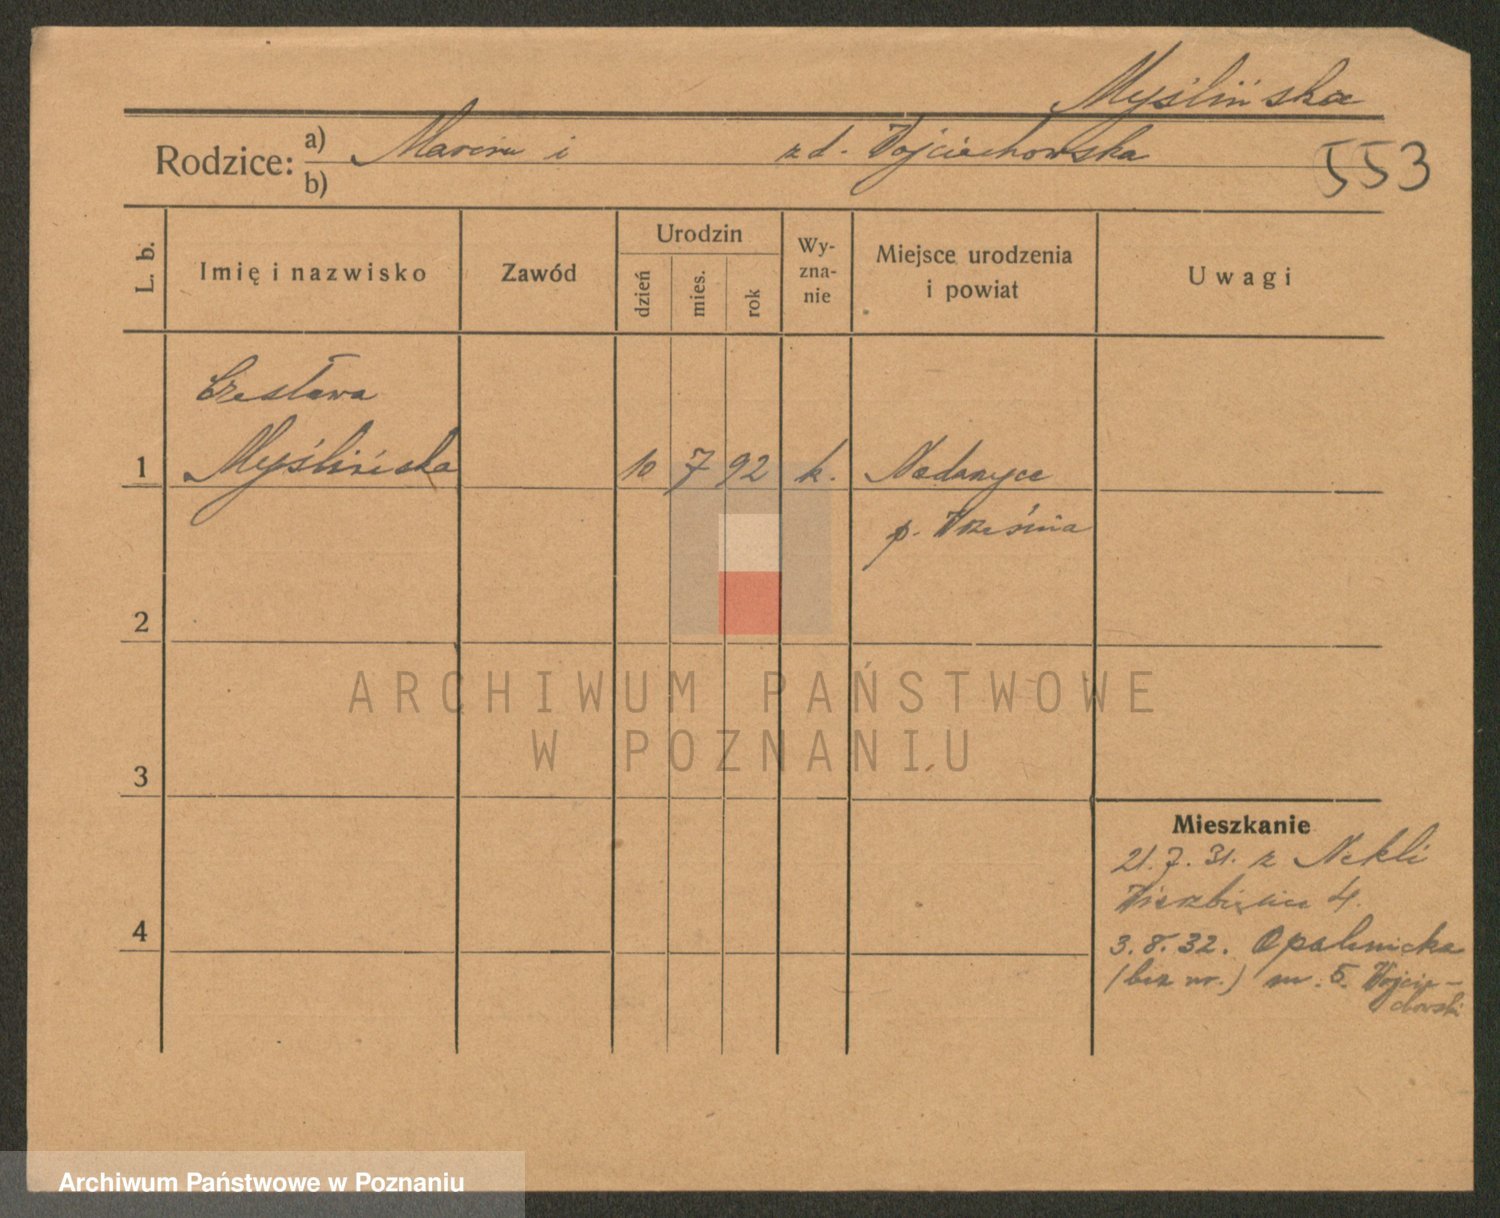 Myślińska
553
Rodzice: a) Marcin i zd. Wojciechowska
b)
L. b.
Imię i nazwisko
Zawód
Urodzin
dzień
mies.
rok
Wy-
zna-
nie
Miejsce urodzenia
i powiat
Uwagi
Czesława
1 Myślińska 10 7 92 k.
p. Września
2
3
4
Mieszkanie
21.7.31. z Nekli
Wierzbięcice 4.
3.8.32. Opalenicka
(bez nr.) m. 5. Wojcie-
chowski
ARCHIWUM PAŃSTWOWE
W POZNANIU
Archiwum Państwowe w Poznaniu